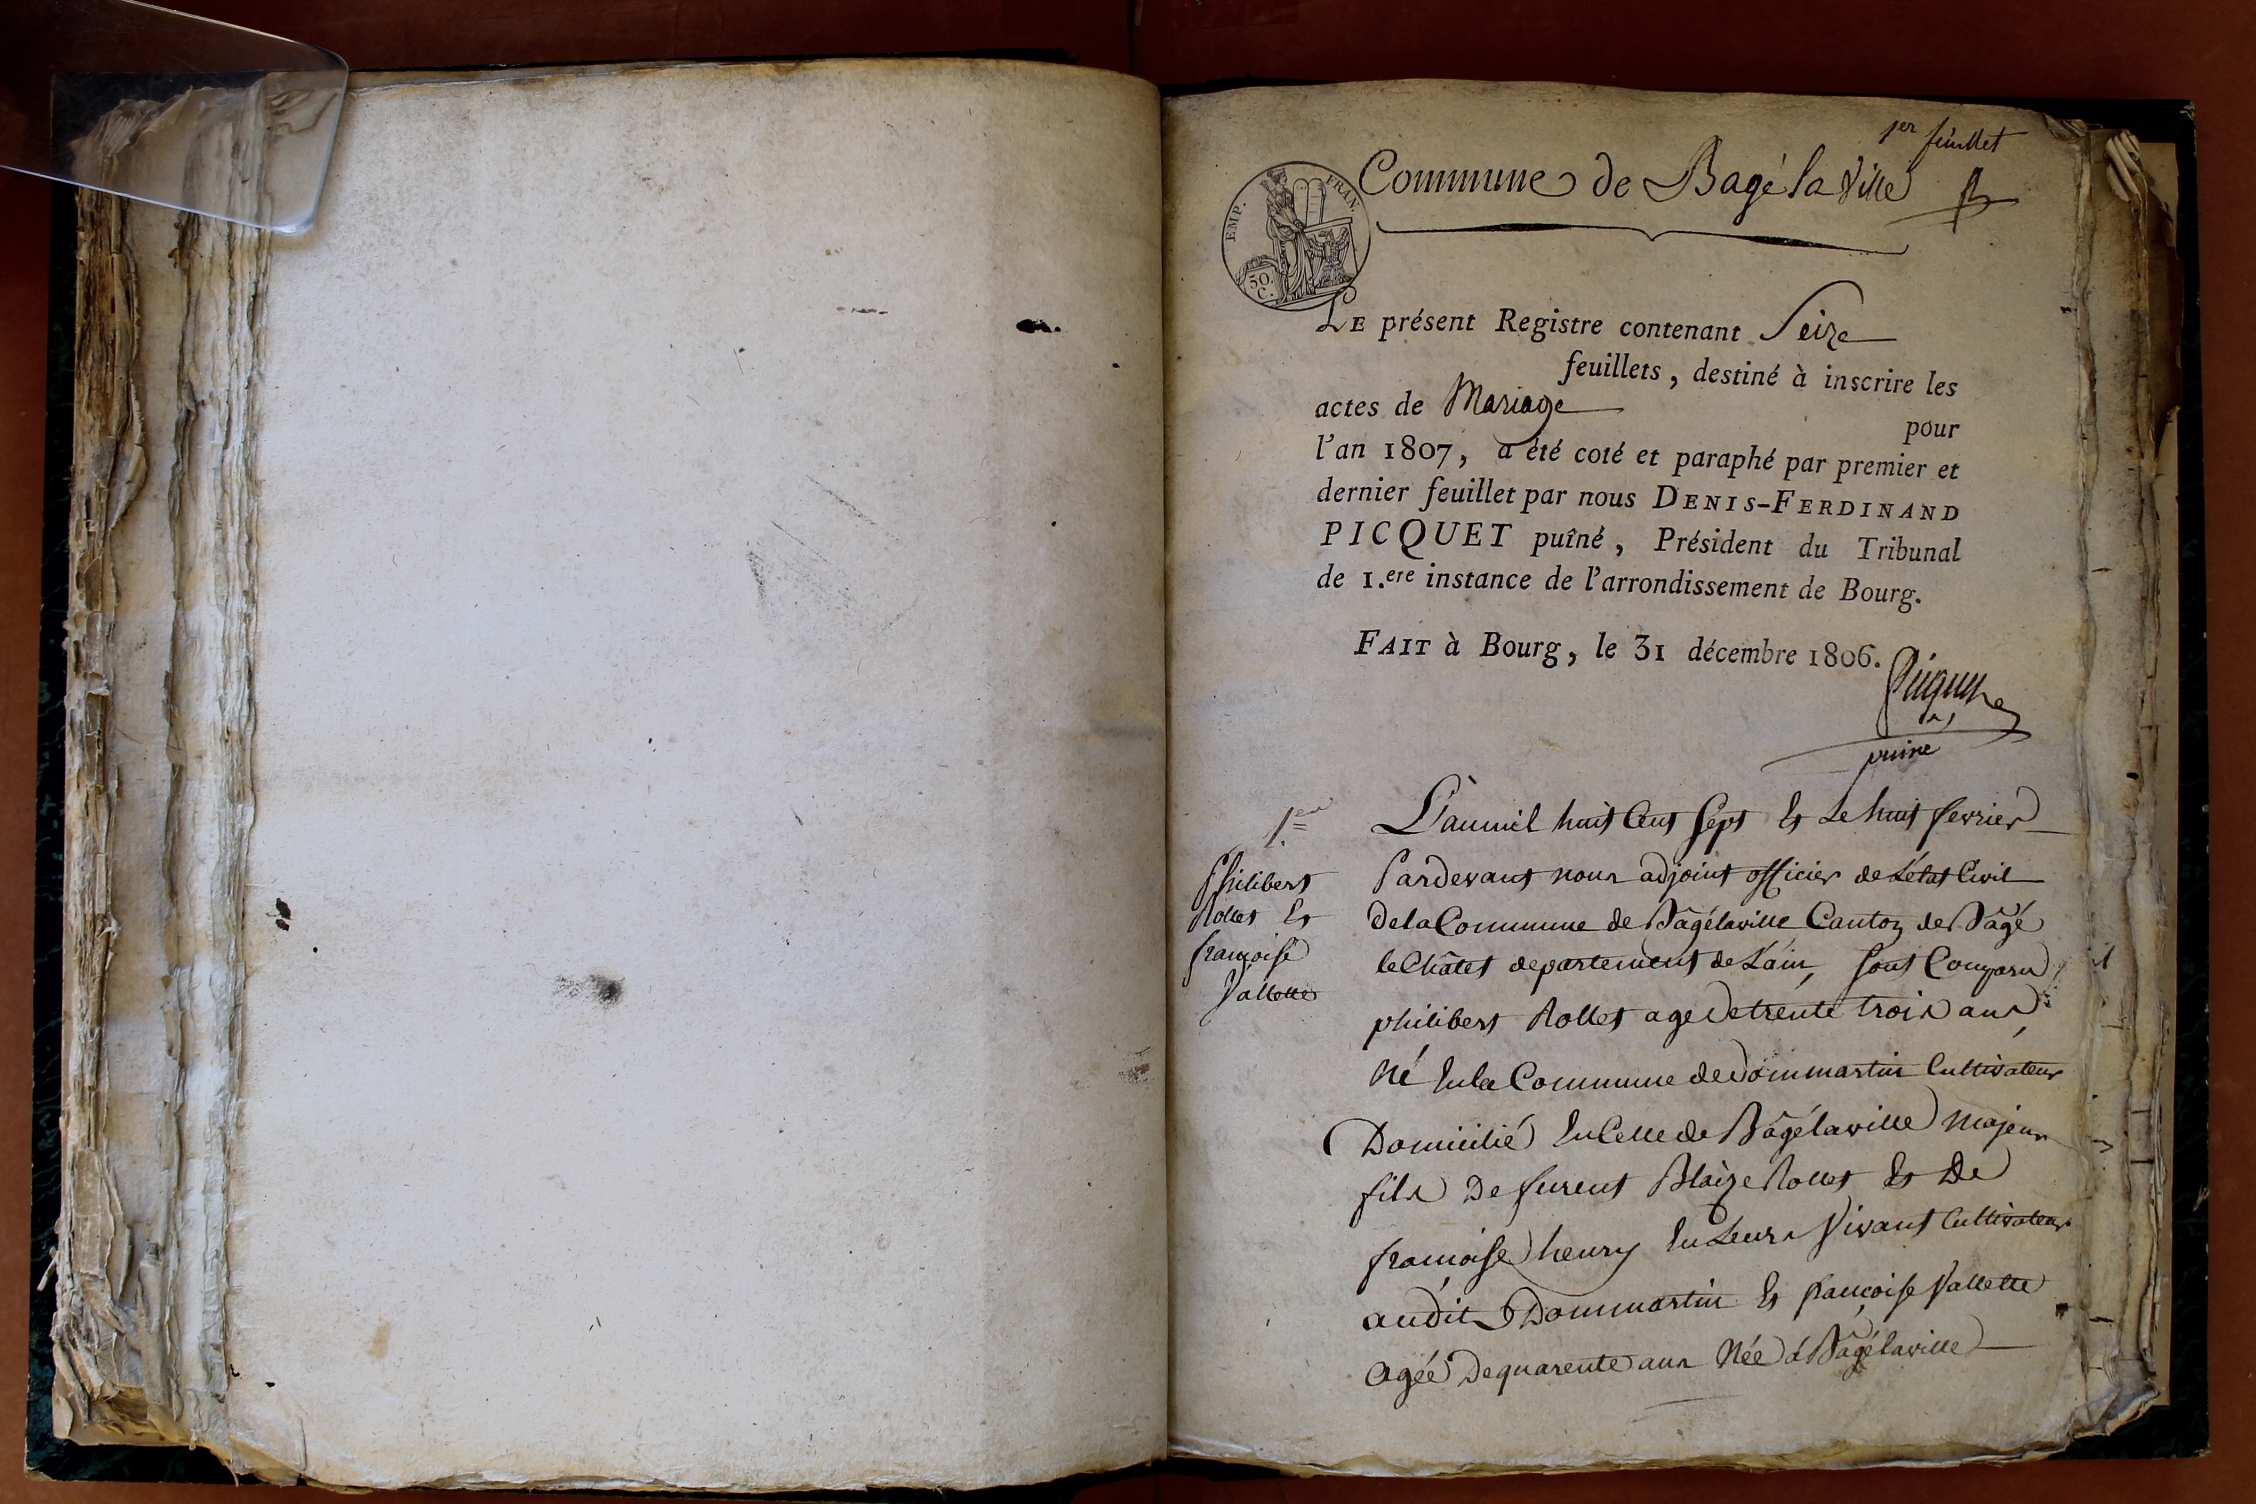 1er feuillet
Commune de Bagé la Ville
EMP. FRAN.
50. C.
LE présent Registre contenant Seize
feuillets, destiné à inscrire les
actes de Mariage
pour
l'an 1807, a été coté et paraphé par premier et
dernier feuillet par nous DENIS-FERDINAND
PICQUET puîné, Président du Tribunal
de 1.ere instance de l'arrondissement de Bourg.
FAIT à Bourg, le 31 décembre 1806.
Picquet
puiné
1.er
Philibert
Rollet Et
françoise
Vallette
L'an mil huit Cent Sept Et Le huit fevrier
Pardevant nous adjoint officier de L'état Civil
de la Commune de Bâgélaville Canton de Bâgé
le Châtel departement de L'ain, sont Comparu
philibert Rollet age de trente trois ans
Né En la Commune de Dommartin Cultivateur
Domicilié En Celle de Bâgélaville Majeur
fils De furent Blaize Rollet Et De
francoise henry En Leurs Vivant Cultivateurs
audit Dommartin Et françoise Vallette
Agée De quarente ans Née á Bâgélaville